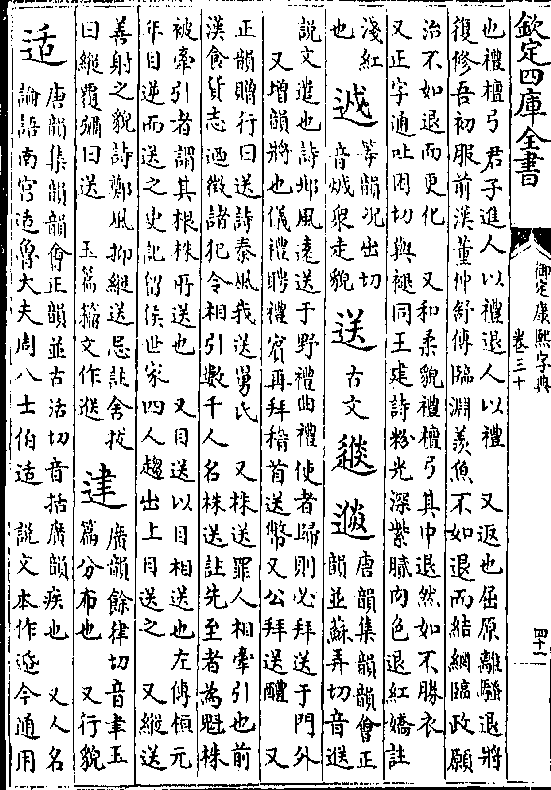 欽定四庫全書
御定康熙字典
卷三十
四十一
也禮檀弓君子進人以禮退人以禮 又返也屈原離騷退將
復修吾初服前漢董仲舒傳臨淵羨魚不如退而結網臨政願
治不如退而更化 又和柔貌禮檀弓其中退然如不勝衣
又正字通吐困切與褪同王建詩粉光深紫膩肉色退紅嬌註
淺紅
也
篇韻況出切
音 衆走貌
送 古文
唐韻集韻韻會正
韻並蘇弄切音
說文遣也詩邶風遠送于野禮曲禮使者歸則必拜送于門外
又增韻將也儀禮聘禮賓再拜稽首送幣又公拜送醴 又
正韻贈行曰送詩秦風我送舅氏 又株送罪人相牽引也前
漢食貨志廼徵諸犯令相引數千人名株送註先至者為魁株
被牽引者謂其根株所送也 又目送以目相送也左傳桓元
年目逆而送之史記留侯世家四人趨出上目送之 又縱送
善射之貌詩鄭風抑縱送忌註舍拔
曰縱覆彇曰送 玉篇籀文作
䢖
廣韻餘律切音聿玉
篇分布也 又行貌
适
唐韻集韻韻會正韻並古活切音括廣韻疾也 又人名
論語南宮适魯大夫周八士伯适 說文本作 今通用